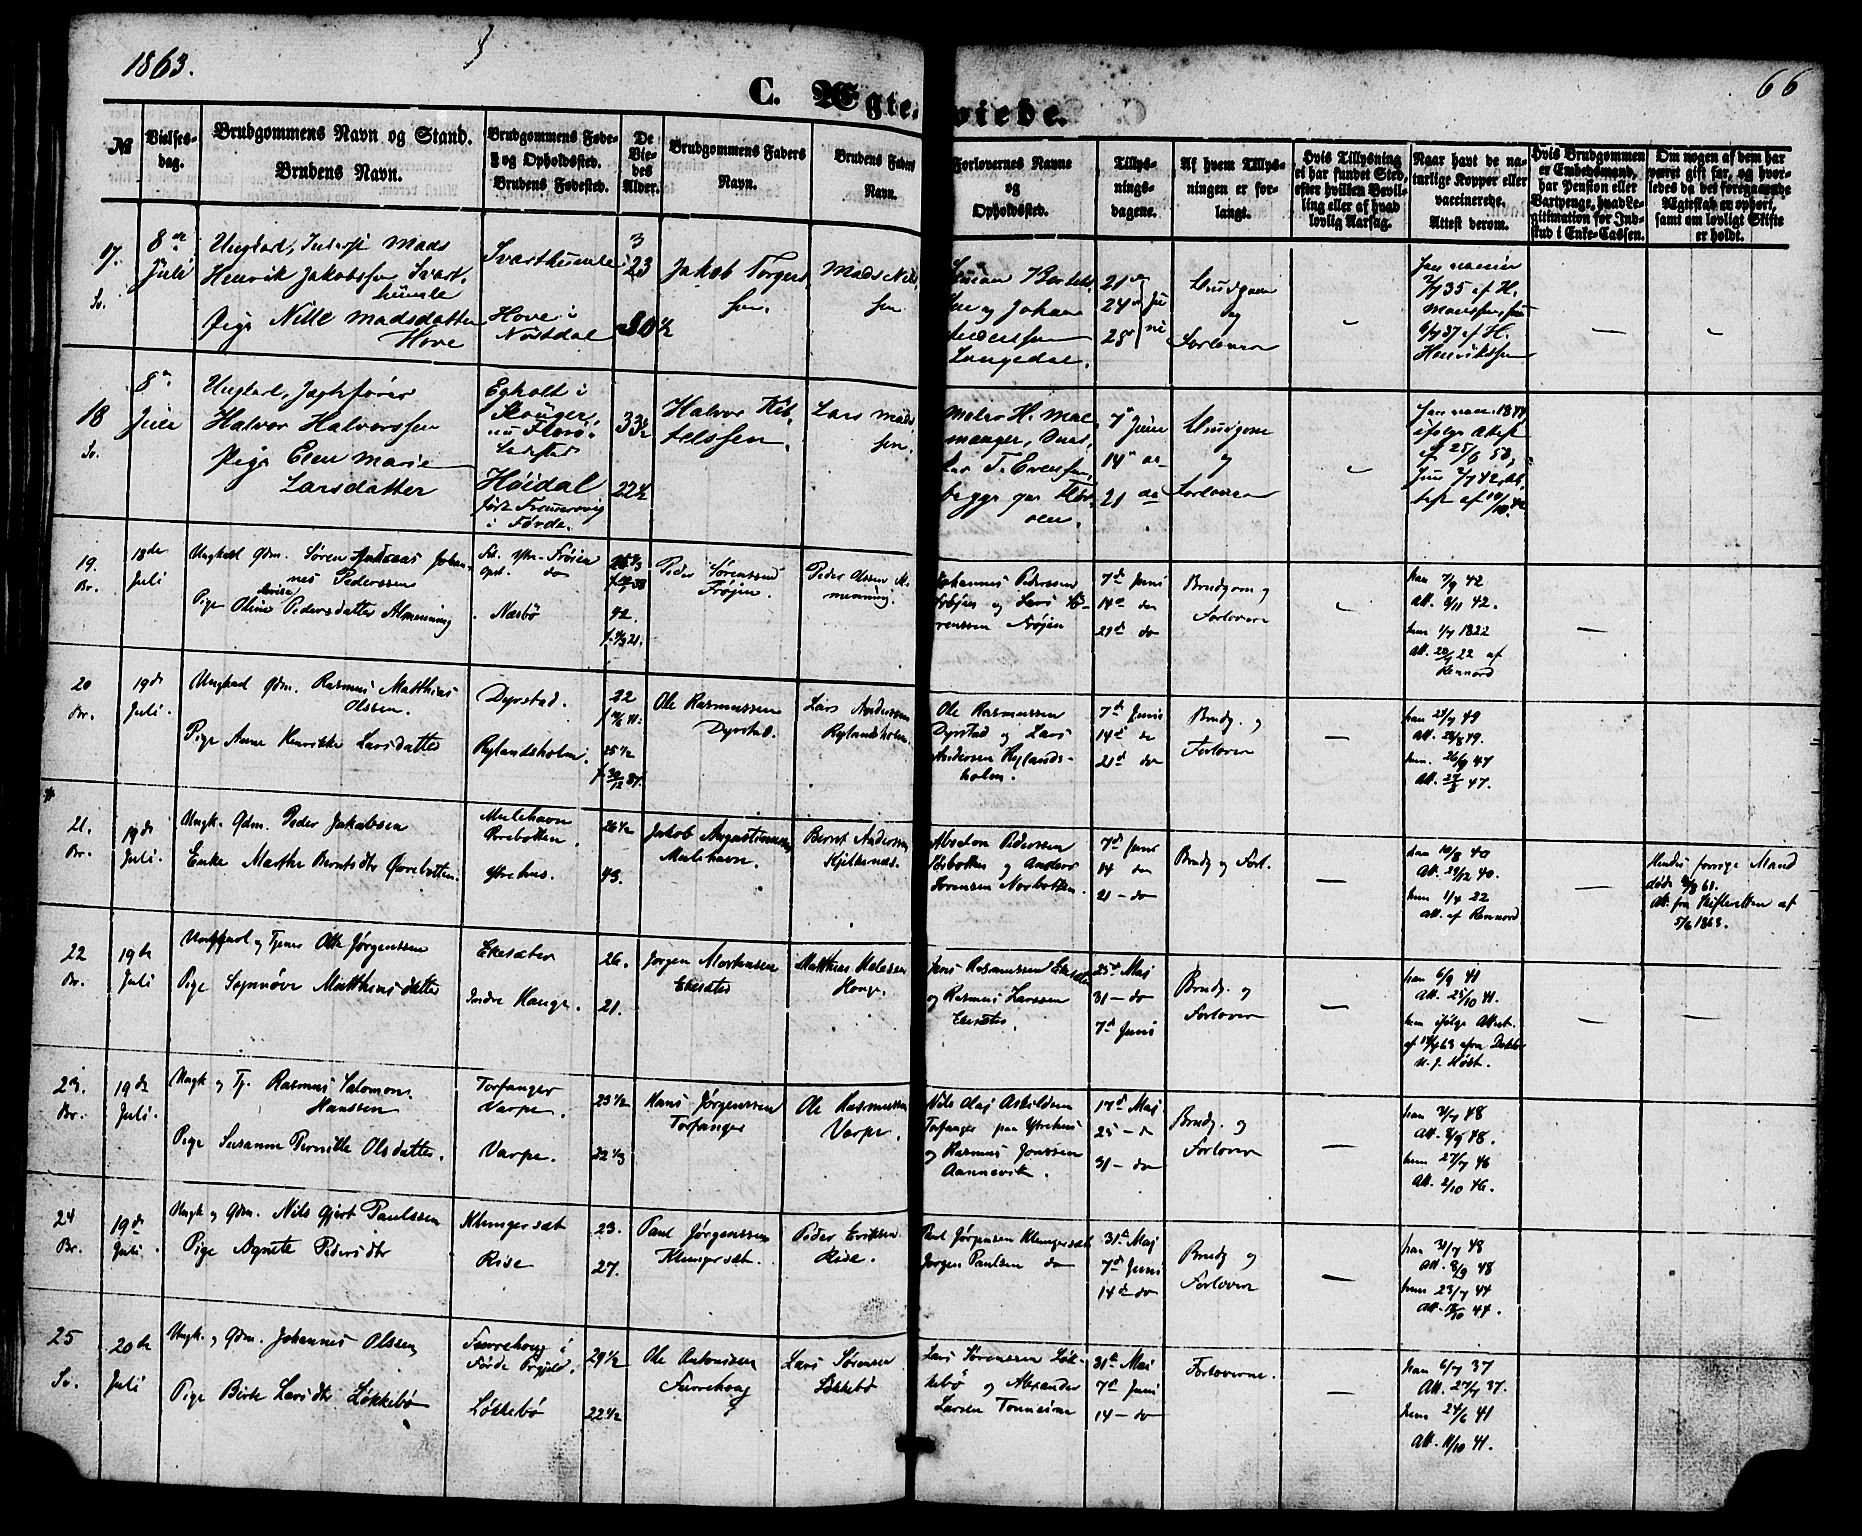 1863.
66
C. Ægte-
viede.
№
Vielses-
dag.
Brudgommens Navn og Stand.
Brudens Navn.
Brudgommens Føde-
og Opholdssted.
Brudens Fødested.
De
Vie-
des
Alder.
Brudgommens Faders
Navn.
Brudens Faders
Navn.
Forlovernes Navne
og
Opholdssted.
Tillys-
nings-
dagene.
Af hvem Tillys-
ningen er for-
langt.
Hvis Tillysning
ei har fundet Sted,
efter hvilken Bevil-
ling eller af hvad
lovlig Aarsag.
Naar havt de na-
turlige Kopper eller
vaccinerede.
Attest derom.
Hvis Brudgommen
er Embedsmand,
har Pension eller
Vartpenge, hvad Le-
gitimation for Ind-
skud i Enke-Cassen.
Om nogen af dem har
været gift før, og hvor-
ledes da det foregaaende
Ægteskab er ophørt,
samt om lovligt Skifte
er holdt.
17.
Sv.
8de
Juli
Ungkarl, Mads
Henrik Jakobssen Svart-
humle
Pige Nille Madsdatter
Hove
Svarthumle
Hove i
Nøstdal
23
30½
Jakob Torger-
sen.
Mads Nils-
sen
og Johan
Anderssen
Langedal.
21de
24de
25de
Juni
Brudgom
og
Forlovere
—
2/7 35 af H.
6/7 37 af H.
Henrikssen
—
—
18
Sv.
8de
Juli
Ungkarl, Jægtefører
Halvor Halvorssen
Pige Elen Marie
Larsdatter
Egholt i
nu Florø
Ladsted
Høidal
i Førde.
33½
22½
Halvor Kit-
telssen.
Lars Mads-
sen.
T. Evensen,
begge paa Flor-
øen.
7de Juni
14de do
21 do
Brudgom
og
Forlovere
—
ifølge Attest
af 25/6 58,
19.
Br.
18de
Juli
Ungkarl Gdm. Søren Andreas Johan-
nes Pederssen
Pige Oline Lovise Pedersdatter Almenning
Fød. Ytre-Frøien
Opst. do
Nasbø
42.
Peder Sørenssen
Frøien.
Peder Olssen Al-
menning.
Johannes Pederssen
Frøien og Lars Sø-
renssen Frøien
7de Juni
14de do
21de do
Brudgom og
Forlovere
—
han 7/9 42
Att. 8/11 42.
hun 1/7 1822
Att. 20/9 22 af
Rennord
—
20
Br.
19de
Juli.
Ungkarl Gdm. Rasmus Matthias
Olssen.
Pige Anne Henrikke Larsdatter
Dyrstad.
Rylandsholm.
22
25½
Ole Rasmussen
Dyrstad.
Lars Anderssen
Rylandsholm.
Ole Rasmussen
Dyrstad og Lars
Andersen Rylands-
holm.
7de Juni
14de do
21de do
Brudg. og
Forlovere
—
han 24/7 49
Att. 28/8 49.
hun. 26/9 47
Att. 27/8 47.
21.
Br.
19de
Juli.
Ungk. Gdm. Peder Jakobsen
Enke Marthe Berntsdtr Øvrebotten.
Mulehavn
Øvrebotten.
Ytrehus.
26½
43.
Jakob Augustinussen
Mulehavn.
Bernt Anderssen
Absalon Pederssen
og Andreas
Sørensen Norbotten.
7de Juni
14 do
21 – do
Brudg og Forl.
—
han 10/8 40
Att. 29/12 40.
hun 1/7 22
Att. af Rennord
—
Hendes forrige Mand
døde 61.
Att. fra Skifteretten af
5/6 1863.
22
Br.
19de
Juli
Ungkarl og Tjener Otte Jørgenssen
Pige Synnøve Matthiasdatter
Ekesæter
Indre Hauge.
26.
21.
Jørgen Mortensen
Ekesæter
Matthias
Hauge.
Jens Rasmussen Ekesæter
og Rasmus Larssen
Ekesæter.
25de Maj
31 – do
7de Juni
Brudg. og
Forlovere
—
han 6/9 41
Att. 25/10 41.
hun ifølge Attest.
—
—
23.
Br.
19de
Juli.
Ungk og Tj. Rasmus Salomon
Hanssen
Pige Susanne Pernille Olsdatter.
Torfanger
Varpe.
Varpe.
23½
22⅓
Hans Jørgenssen
Torfanger
Ole Rasmussen
Varpe.
Nils Olaj Askildsen
Torfanger paa Ytrehus
og Rasmus Jonssen
Aannevik.
17de Maj
25 – do
31 – do
Brudg. og
Forlovere
—
han 3/7 48
Att. 8/9 48.
hun 27/7 46
Att. 2/10 46.
24
Br.
19de
Juli.
Ungk og Gdm. Nils Gjert Paulssen
Pige Agnete Pedersdtr
Klungersæt
Rise
23.
27.
Paul Jørgenssen
Klungersæt.
Peder Eriksen
Rise.
Paul Jørgensen Klungersæt
Jørgen Paulsen do
31de Maj
7de Juni
14de do
Brudg og
Forlovere
—
han 31/7 48
Att. 8/9 48
hun 23/7 44
Att. 18/10 44.
25
Sv.
20de
Juli
Ungk. og Gdm. Johannes Olssen
Pige Birte Larsdtr Løkkebø
Furrehoug i
Førde Prgjeld.
Løkkebø
29½
22½
Ole Antonissen
Furrehoug
Lars Sørensen
Løkkebø
Lars Sørenssen Løk-
kebø og Alexander
Larsen Tonheim
31de Maj
7de Juni
14 – do
Forloverne.
—
han 6/7 37
Att. 27/7 37.
hun 24/6 41
Att. 11/10 41.